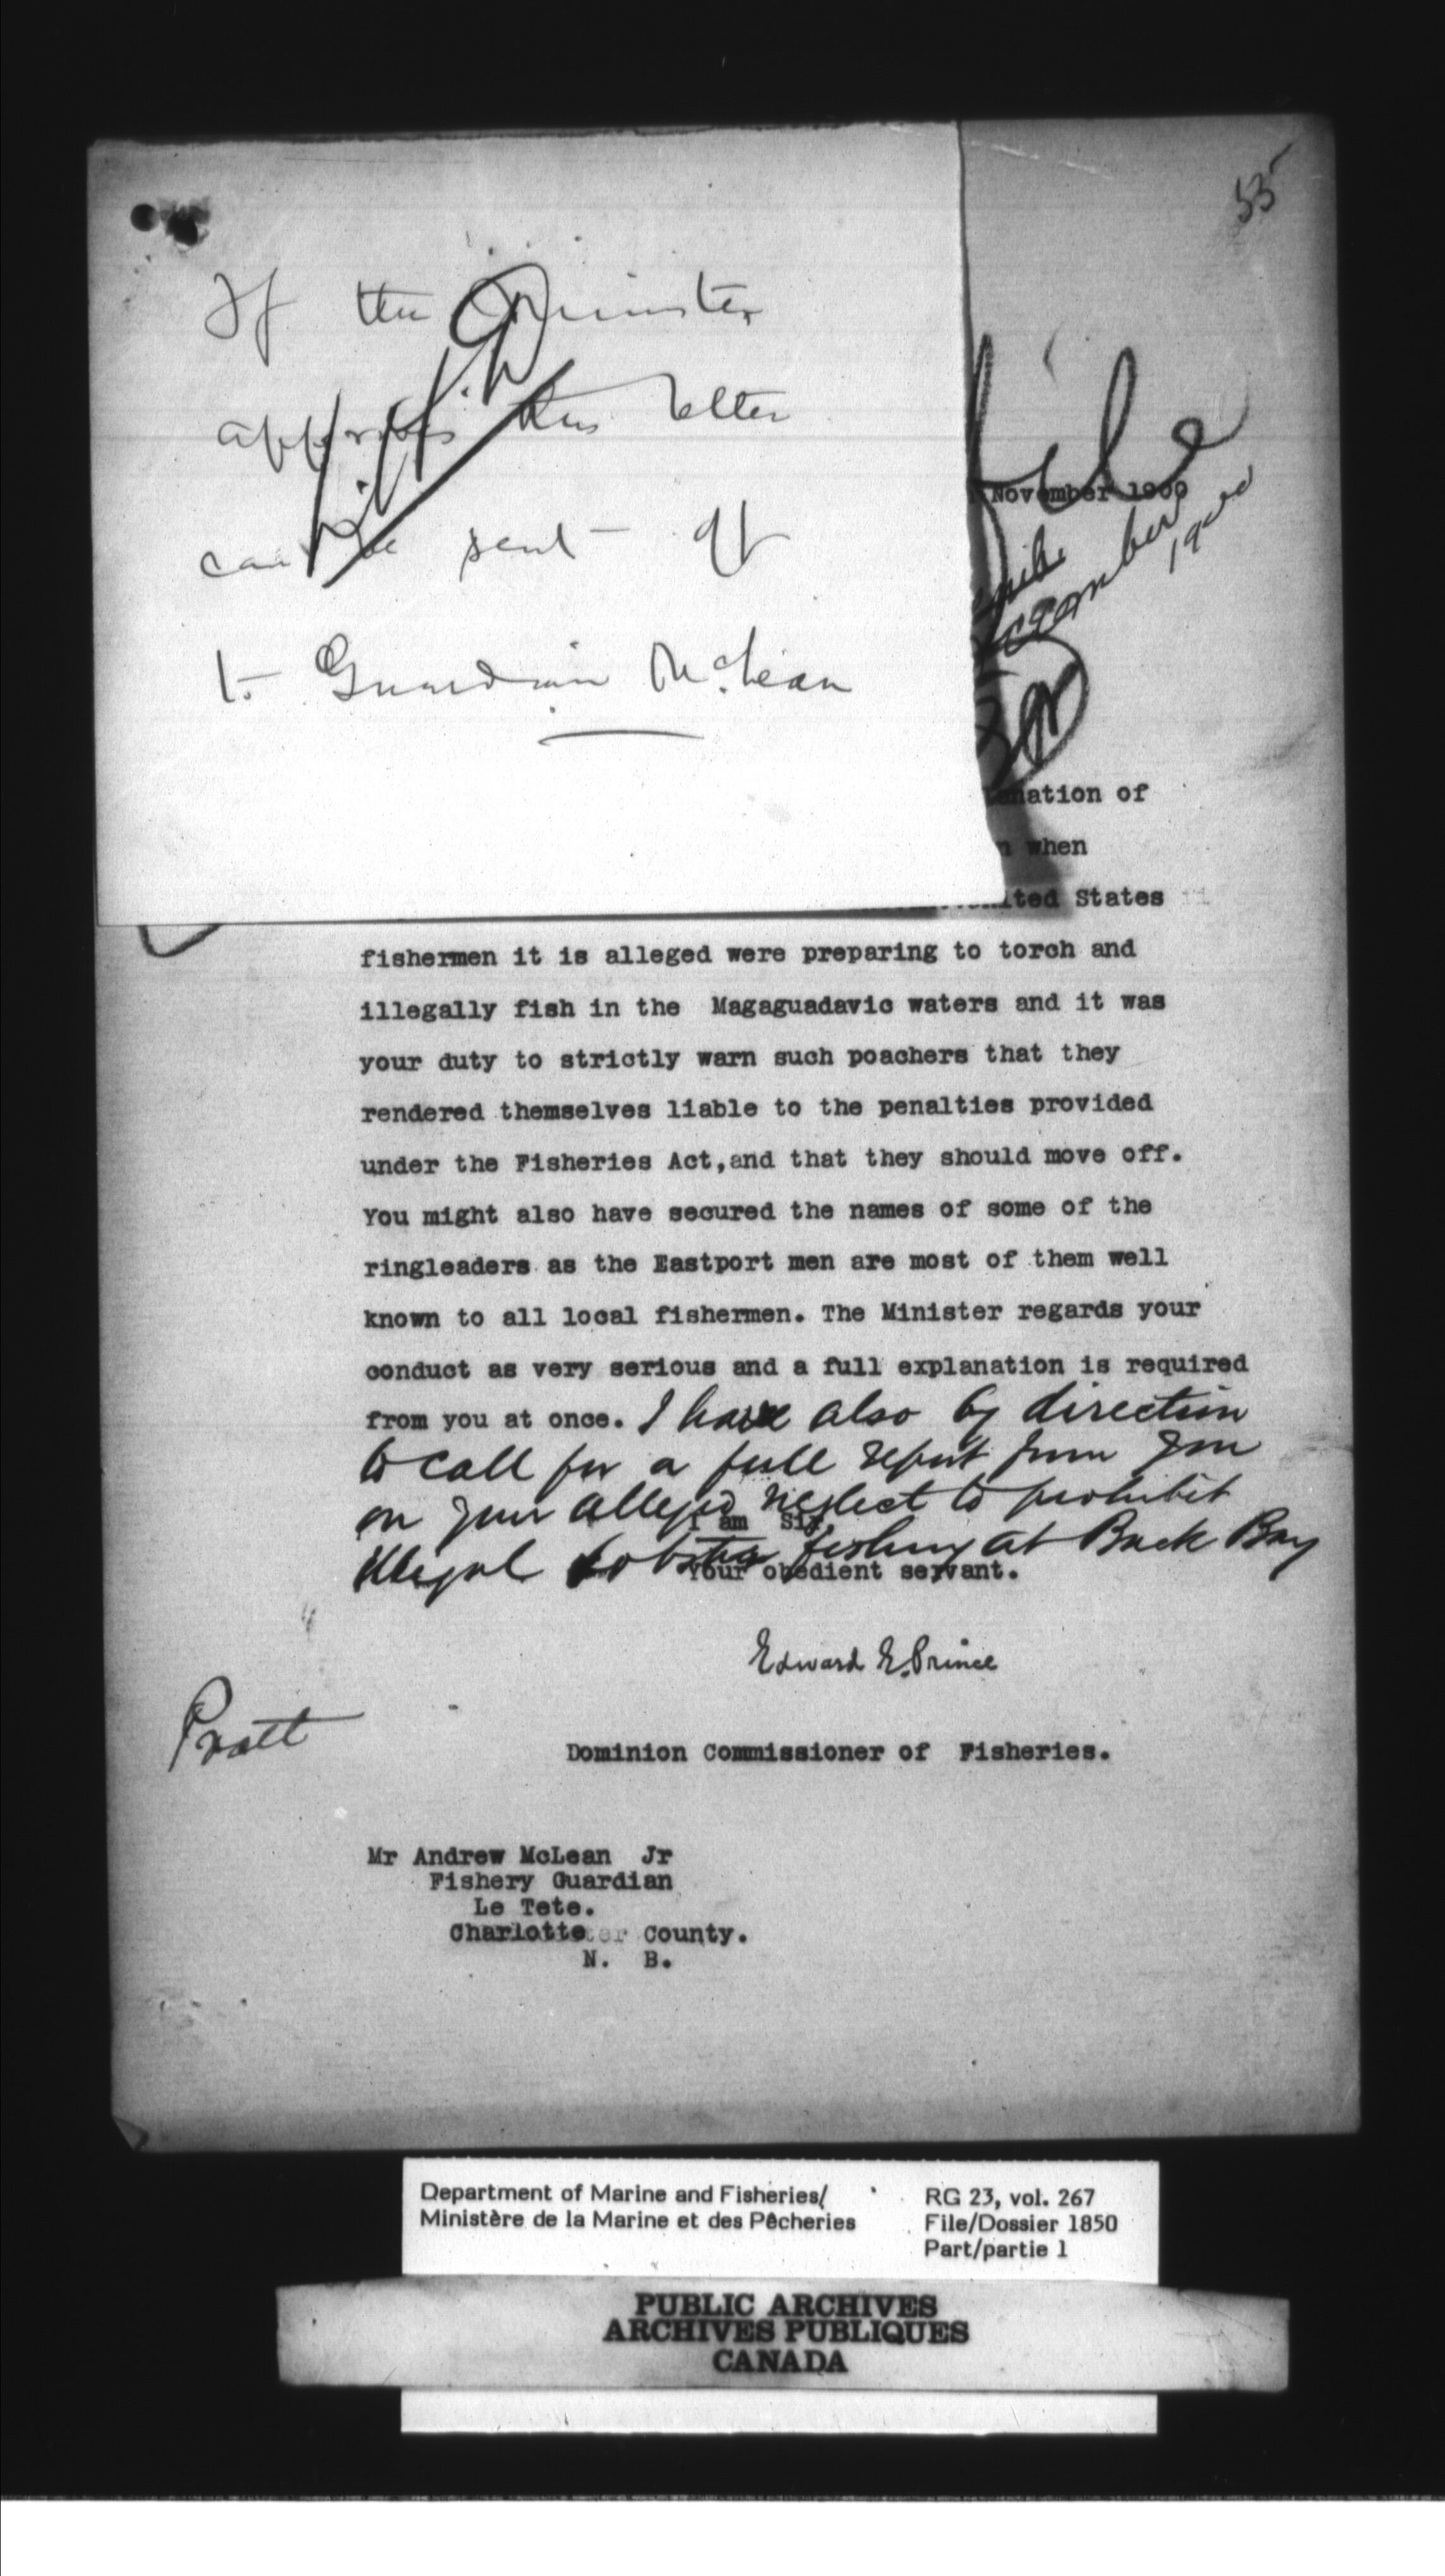 53
If the Minister
approves this letter
can be sent off
to Guardian McLean
File
November 1900
1900
anation of
n when
ited States
fishermen it is alleged were preparing to torch and
illegally fish in the Magaguadavic waters and it was
your duty to strictly warn such poachers that they
rendered themselves liable to the penalties provided
under the Fisheries Act,and that they should move off.
You might also have secured the names of some of the
ringleaders as the Eastport men are most of them well
known to all local fishermen. The Minister regards your
conduct as very serious and a full explanation is required
from you at once. I have also by direction
to call for a full report from you
on your alleged neglect to prohibit
illegal lobster fishing at Back Bay
I am Sir,
Your obedient servant.
Edward E. Prince
Pratt
Dominion Commissioner of Fisheries.
Mr Andrew McLean Jr
Fishery Guardian
Le Tete.
Charlotte County.
N. B.
Department of Marine and Fisheries/
Ministère de la Marine et des Pêcheries
RG 23, vol. 267
File/Dossier 1850
Part/partie 1
PUBLIC ARCHIVES
ARCHIVES PUBLIQUES
CANADA